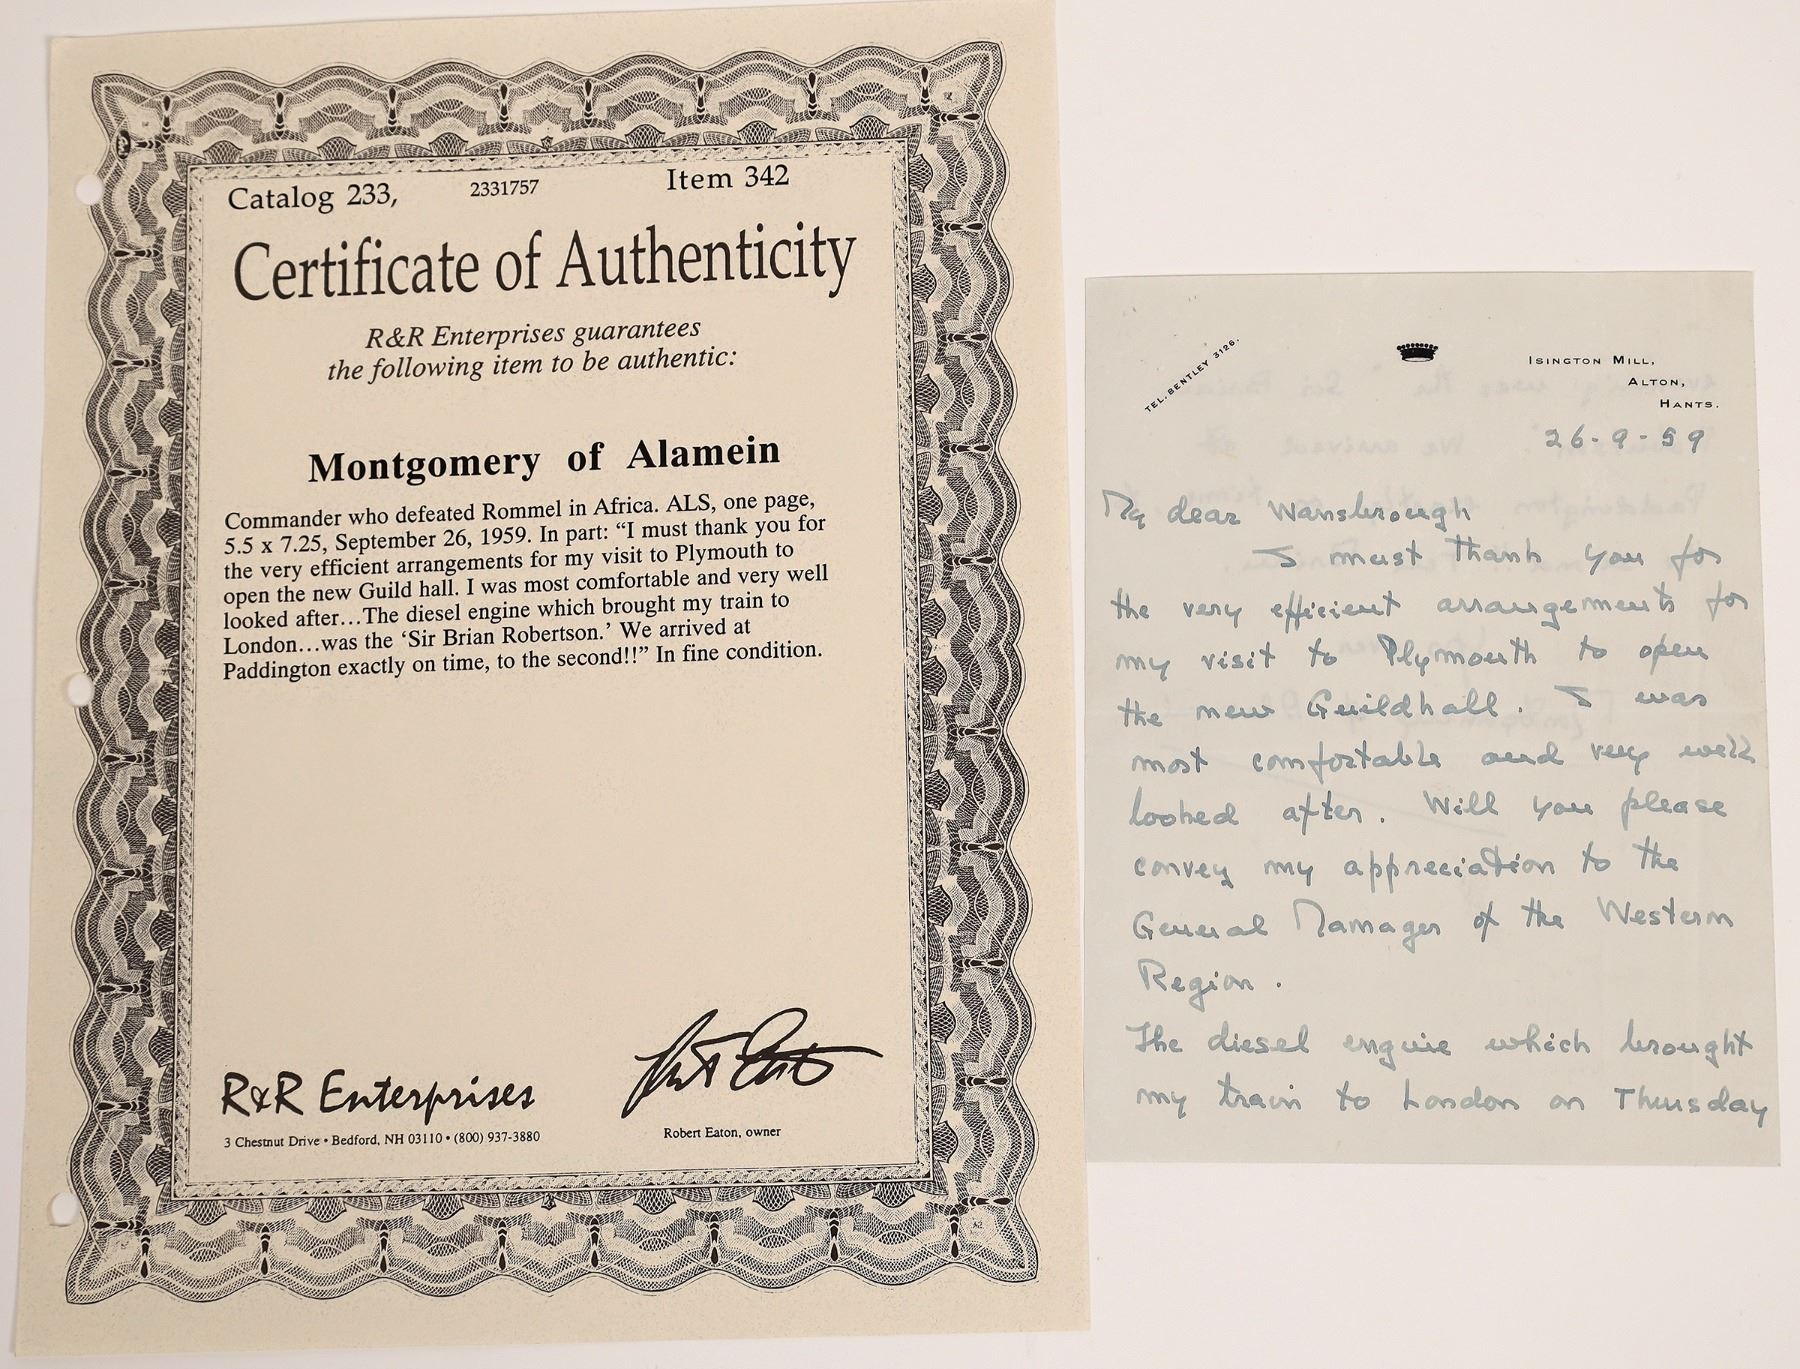 Catalog 233, 2331757 Item 342
Certificate of Authenticity
R&R Enterprises guarantees
the following item to be authentic:
Montgomery of Alamein
Commander who defeated Rommel in Africa. ALS, one page,
5.5 x 7.25, September 26, 1959. In part: “I must thank you for
the very efficient arrangements for my visit to Plymouth to
open the new Guild hall. I was most comfortable and very well
looked after…The diesel engine which brought my train to
London…was the ‘Sir Brian Robertson.’ We arrived at
Paddington exactly on time, to the second!!” In fine condition.
R&R Enterprises
3 Chestnut Drive • Bedford, NH 03110 • (800) 937-3880
Robert Eaton, owner
TEL. BENTLEY 3126.
ISINGTON MILL,
ALTON,
HANTS.
26-9-59
My dear Wansbrough
I must thank you for
the very efficient arrangements for
my visit to Plymouth to open
the new Guildhall. I was
most comfortable and very well
looked after. Will you please
convey my appreciation to the
General Manager of the Western
Region.
The diesel engine which brought
my train to London on Thursday